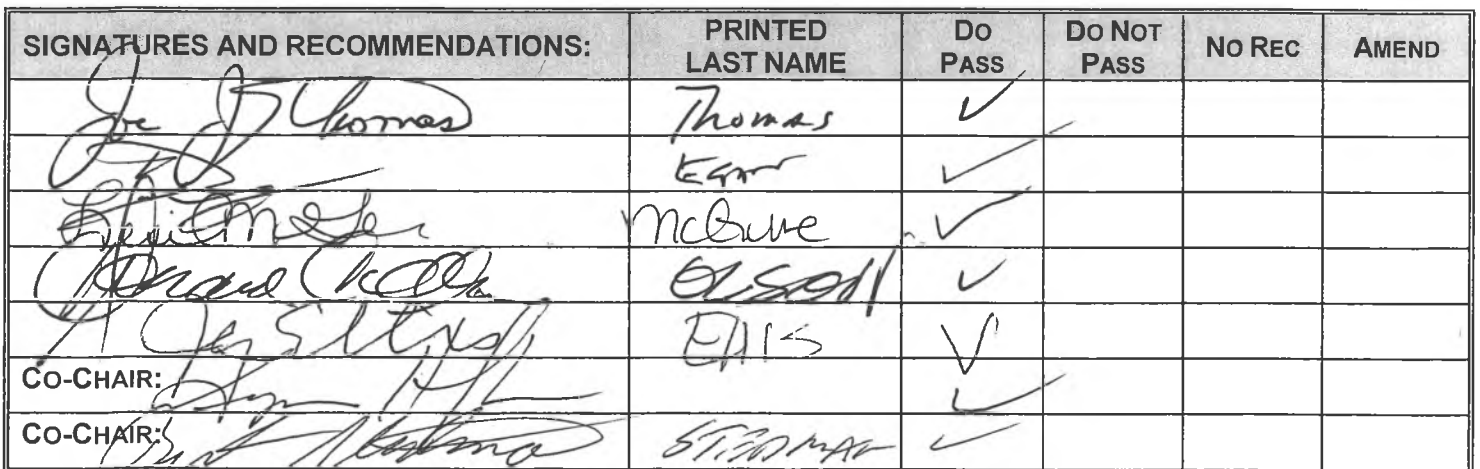 SIGNATURES AND RECOMMENDATIONS: PRINTED LAST NAME DO PASS DO NOT PASS NO REC AMEND
Joe J Thomas Thomas ✓
Egan ✓
McGuire ✓
Olson ✓
Ellis ✓
CO-CHAIR: ✓
CO-CHAIR: Bert Stedman STEDMAN ✓